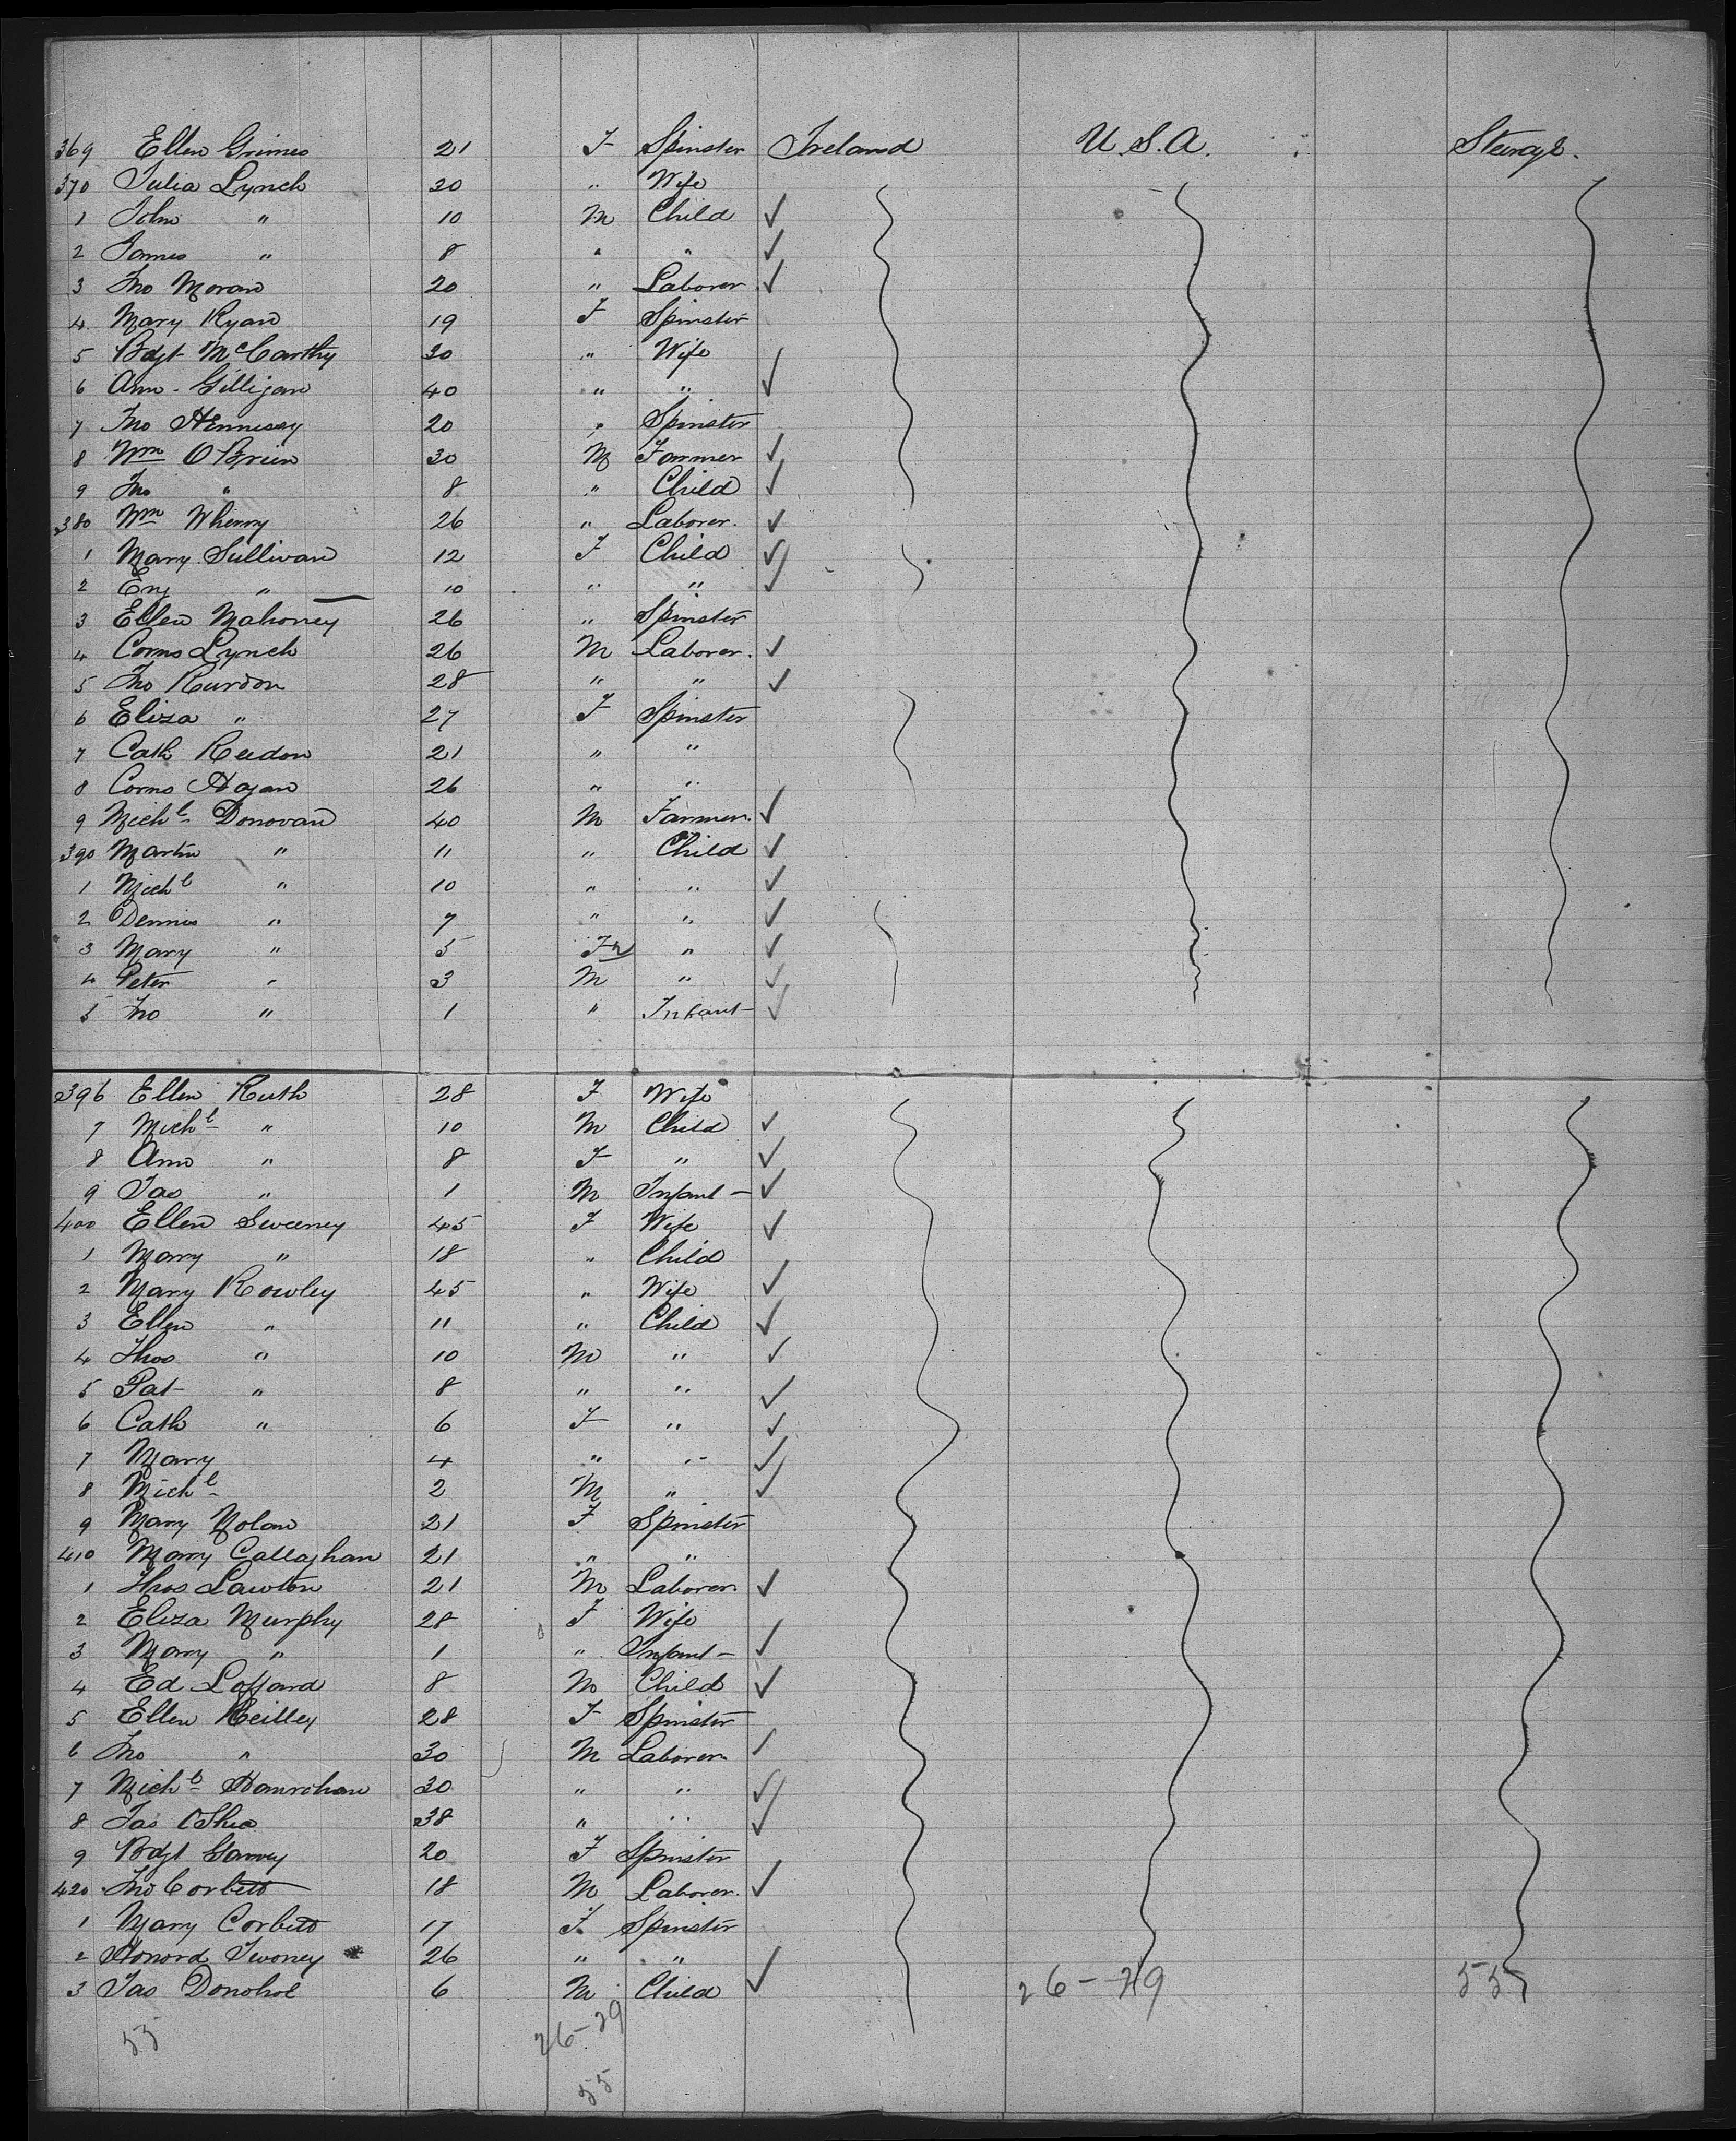 369 Ellen Grimes 21 F Spinster Ireland U.S.A. Steerage.
370 Julia Lynch 30 " Wife
1 John " 10 M Child ✓
2 James " 8 " " ✓
3 Jno Moran 20 " Laborer ✓
4 Mary Ryan 19 F Spinster
5 Bdgt McCarthy 30 " Wife
6 Ann Gilligan 40 " " ✓
7 Jno Hennessy 20 " Spinster
8 Wm O'Brien 30 M Farmer ✓
9 Jno " 8 " Child ✓
380 Wm Wherry 26 " Laborer. ✓
1 Mary Sullivan 12 F Child ✓
2 Eny " 10 " " ✓
3 Ellen Mahoney 26 " Spinster
4 Corns Lynch 26 M Laborer. ✓
5 Jno Rurdon 28 " " ✓
6 Eliza " 27 F Spinster
7 Cath Reedon 21 " "
8 Corns Hagan 26 " "
9 Michl Donovan 40 M Farmer. ✓
390 Martin " 11 " Child ✓
1 Michl " 10 " " ✓
2 Dennis " 7 " " ✓
3 Mary " 5 F " ✓
4 Peter " 3 M " ✓
5 Jno " 1 " Infant ✓
396 Ellen Ruth 28 F Wife
7 Michl " 10 M Child ✓
8 Ann " 8 F " ✓
9 Jas " 1 M Infant - ✓
400 Ellen Sweeney 45 F Wife ✓
1 Mary " 18 " Child
2 Mary Rowley 45 " Wife ✓
3 Ellen " 11 " Child ✓
4 Thos " 10 M " ✓
5 Pat " 8 " " ✓
6 Cath " 6 F " ✓
7 Mary 4 " " ✓
8 Michl 2 M " ✓
9 Mary Nolan 21 F Spinster
410 Mary Callaghan 21 " "
1 Thos Lawton 21 M Laborer. ✓
2 Eliza Murphy 28 F Wife
3 Mary " 1 " Infant - ✓
4 Ed Loffard 8 M Child ✓
5 Ellen Reilley 28 F Spinster
6 Jno " 30 M Laborer. ✓
7 Michl Hanrahan 30 " " ✓
8 Jas OShea 38 " " ✓
9 Bdgt Garvey 20 F Spinster
420 Jno Corbett 18 M Laborer. ✓
1 Mary Corbett 17 F Spinster
2 Honord Twoney * 26 " " ✓
3 Jas Donohoe 6 M Child ✓ 26-29 55
55 26-29
55